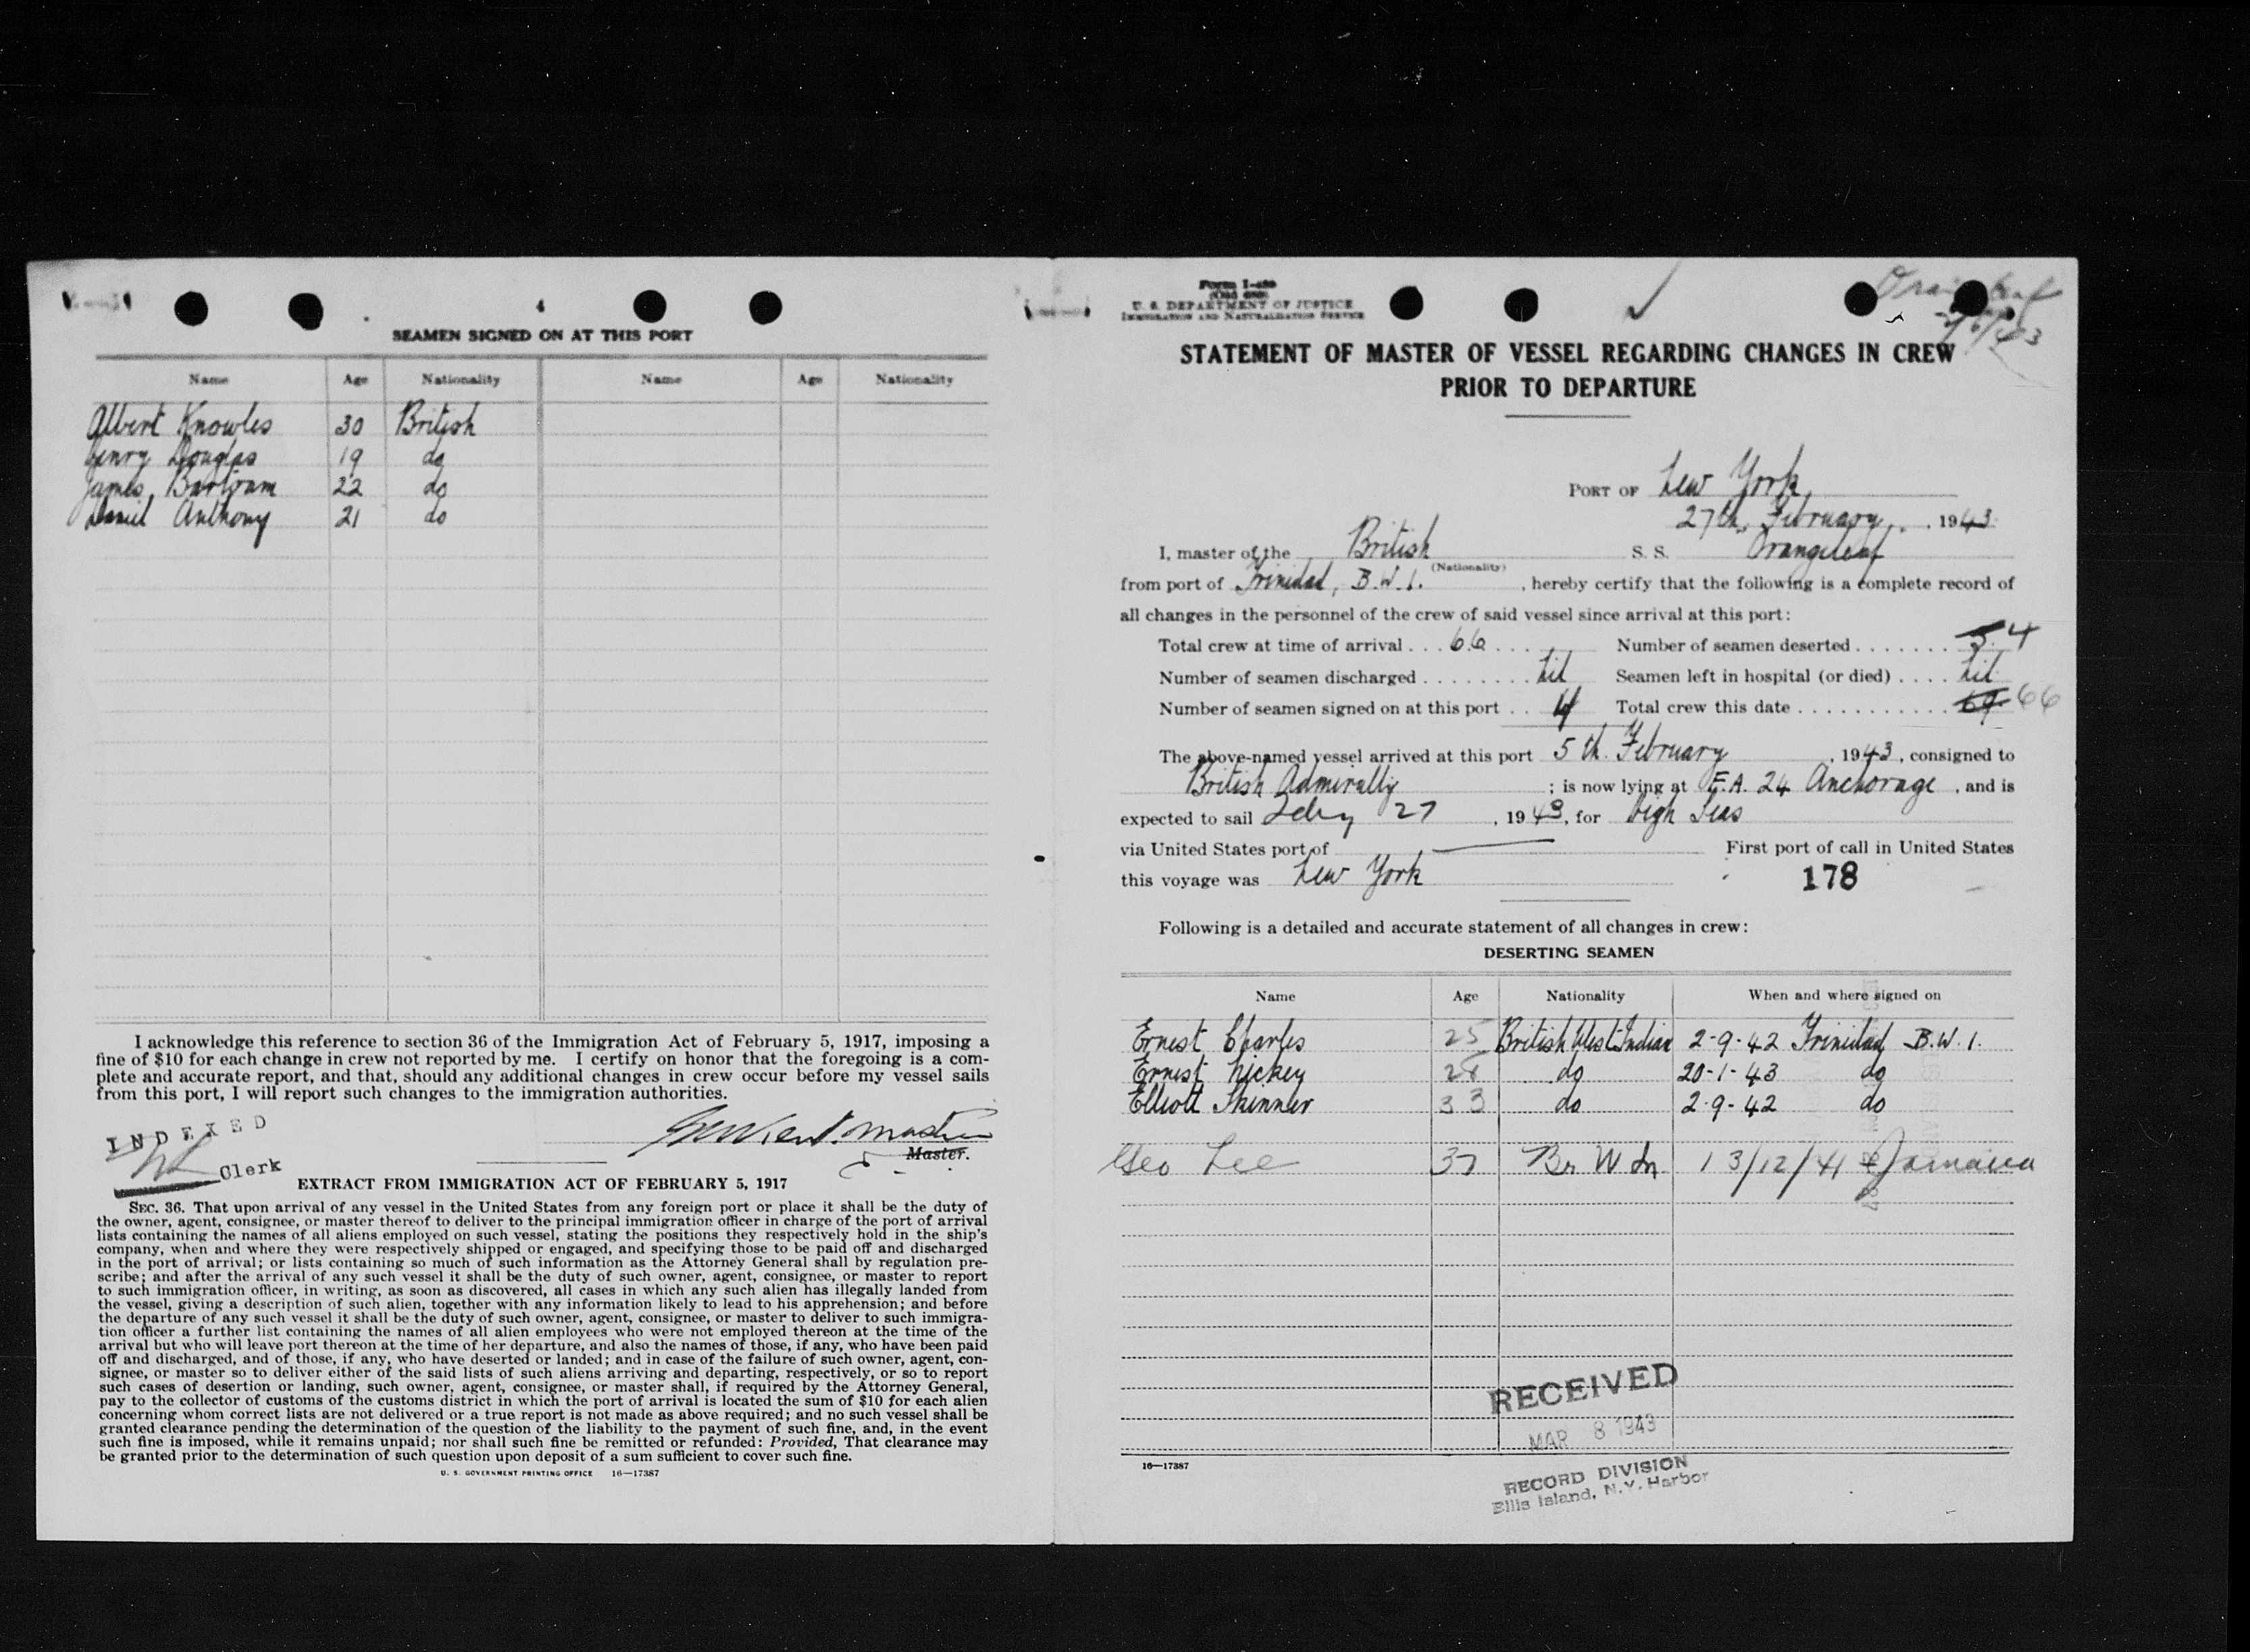 4
SEAMEN SIGNED ON AT THIS PORT
Name Age Nationality Name Age Nationality
Albert Knowles 30 British
Henry Douglas 19 do
James Bartram 22 do
Daniel Anthony 21 do
I acknowledge this reference to section 36 of the Immigration Act of February 5, 1917, imposing a
fine of $10 for each change in crew not reported by me. I certify on honor that the foregoing is a com-
plete and accurate report, and that, should any additional changes in crew occur before my vessel sails
from this port, I will report such changes to the immigration authorities.
INDEXED
Clerk
master
Master.
EXTRACT FROM IMMIGRATION ACT OF FEBRUARY 5, 1917
SEC. 36. That upon arrival of any vessel in the United States from any foreign port or place it shall be the duty of
the owner, agent, consignee, or master thereof to deliver to the principal immigration officer in charge of the port of arrival
lists containing the names of all aliens employed on such vessel, stating the positions they respectively hold in the ship's
company, when and where they were respectively shipped or engaged, and specifying those to be paid off and discharged
in the port of arrival; or lists containing so much of such information as the Attorney General shall by regulation pre-
scribe; and after the arrival of any such vessel it shall be the duty of such owner, agent, consignee, or master to report
to such immigration officer, in writing, as soon as discovered, all cases in which any such alien has illegally landed from
the vessel, giving a description of such alien, together with any information likely to lead to his apprehension; and before
the departure of any such vessel it shall be the duty of such owner, agent, consignee, or master to deliver to such immigra-
tion officer a further list containing the names of all alien employees who were not employed thereon at the time of the
arrival but who will leave port thereon at the time of her departure, and also the names of those, if any, who have been paid
off and discharged, and of those, if any, who have deserted or landed; and in case of the failure of such owner, agent, con-
signee, or master so to deliver either of the said lists of such aliens arriving and departing, respectively, or so to report
such cases of desertion or landing, such owner, agent, consignee, or master shall, if required by the Attorney General,
pay to the collector of customs of the customs district in which the port of arrival is located the sum of $10 for each alien
concerning whom correct lists are not delivered or a true report is not made as above required; and no such vessel shall be
granted clearance pending the determination of the question of the liability to the payment of such fine, and, in the event
such fine is imposed, while it remains unpaid; nor shall such fine be remitted or refunded: Provided, That clearance may
be granted prior to the determination of such question upon deposit of a sum sufficient to cover such fine.
U. S. GOVERNMENT PRINTING OFFICE 16—17387
Form I-489
U. S. DEPARTMENT OF JUSTICE
IMMIGRATION AND NATURALIZATION SERVICE
STATEMENT OF MASTER OF VESSEL REGARDING CHANGES IN CREW
PRIOR TO DEPARTURE
PORT OF New York
27th February, 1943
I, master of the British S. S. Orangeleaf
(Nationality)
from port of Trinidad, B.W.I. , hereby certify that the following is a complete record of
all changes in the personnel of the crew of said vessel since arrival at this port:
Total crew at time of arrival . . . 66 . . . Number of seamen deserted . . . . . . . 3 4
Number of seamen discharged . . . . . . . . Nil Seamen left in hospital (or died) . . . . Nil
Number of seamen signed on at this port . . 4 Total crew this date . . . . . . . . . . . . 69 66
The above-named vessel arrived at this port 5th February , 1943 , consigned to
British Admiralty ; is now lying at F.A. 24 Anchorage , and is
expected to sail Feby 27 , 1943, for High Seas
via United States port of — First port of call in United States
this voyage was New York 178
Following is a detailed and accurate statement of all changes in crew:
DESERTING SEAMEN
Name Age Nationality When and where signed on
Ernest Charles 25 British West Indian 2-9-42 Trinidad B.W.I.
Ernest Hickey do 20-1-43 do
Elliott Skinner 33 do 2-9-42 do
Geo Lee 37 Br W In 13/12/41 Jamaica
RECEIVED
MAR 8 1943
RECORD DIVISION
Ellis Island, N.Y. Harbor
16—17387